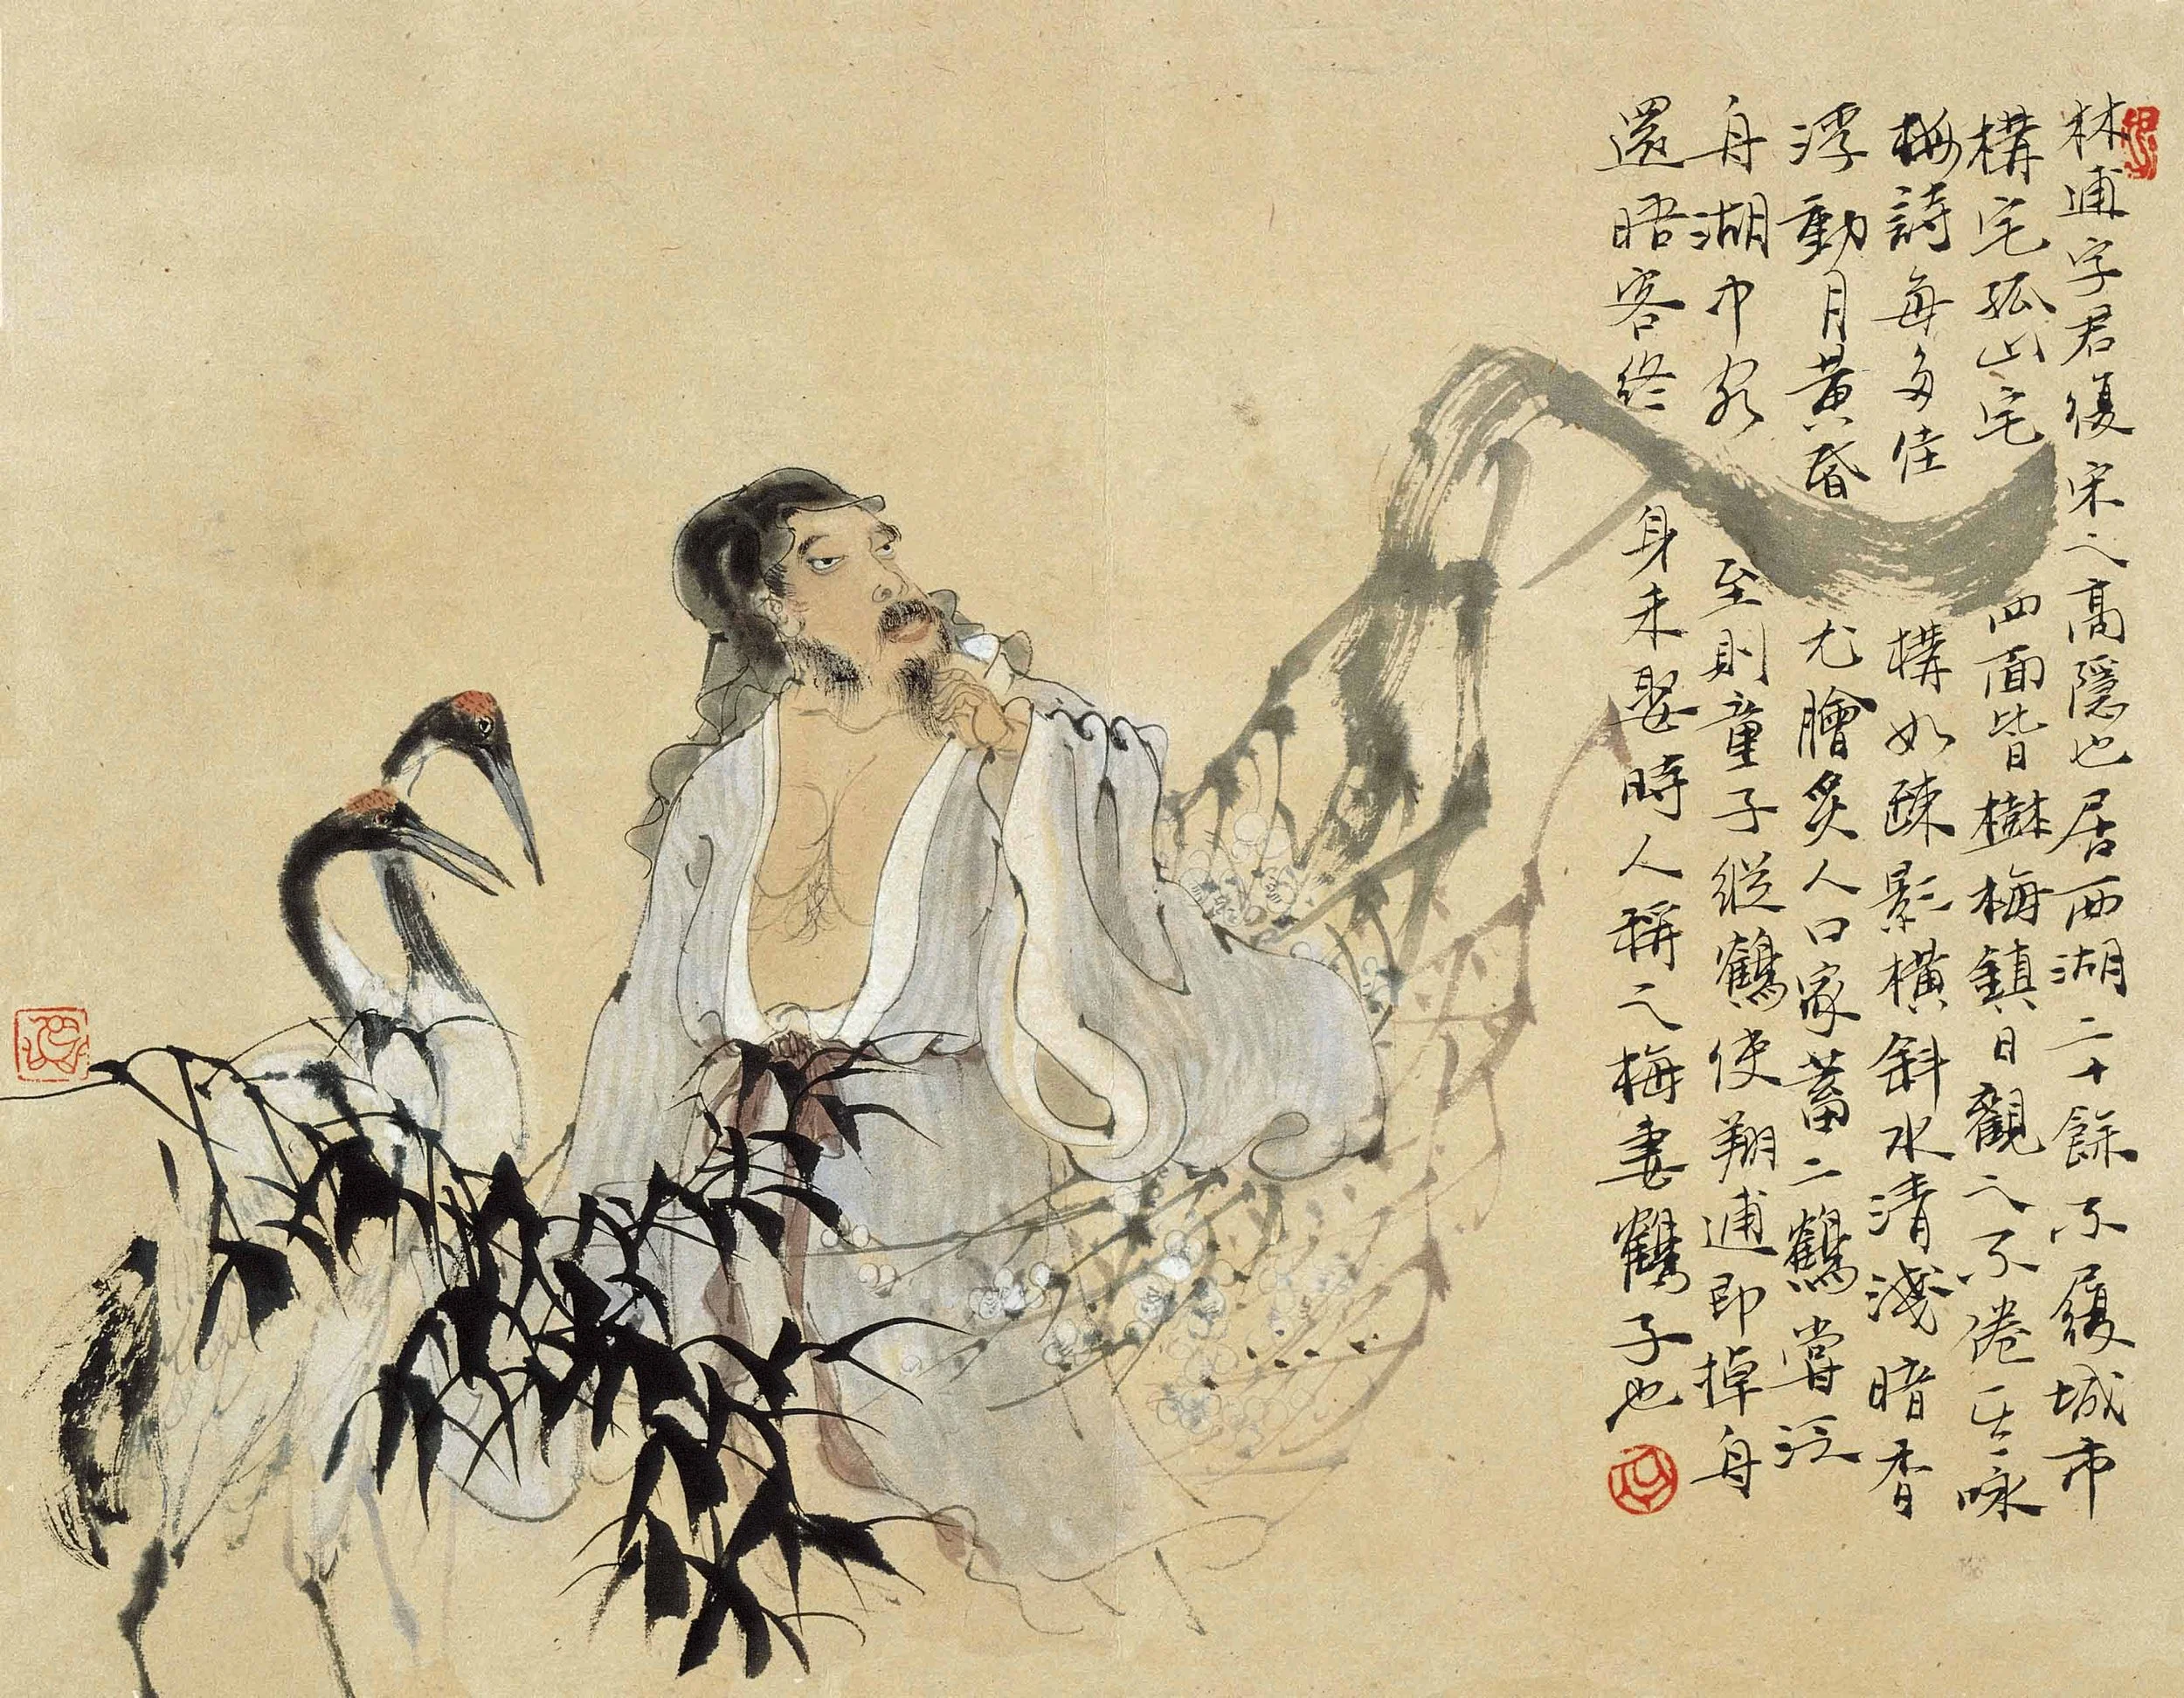 林逋字君復宋之高隱也居西湖二十餘不履城市
構宅孤山宅四面皆樹梅鎮日觀之不倦其詠
梅詩每多佳構如疎影橫斜水清淺暗香
浮動月黃昏尤膾炙人口家蓄二鶴嘗泛
舟湖中客至則童子縱鶴使翔逋即掉舟
還晤客終身未娶時人稱之梅妻鶴子也